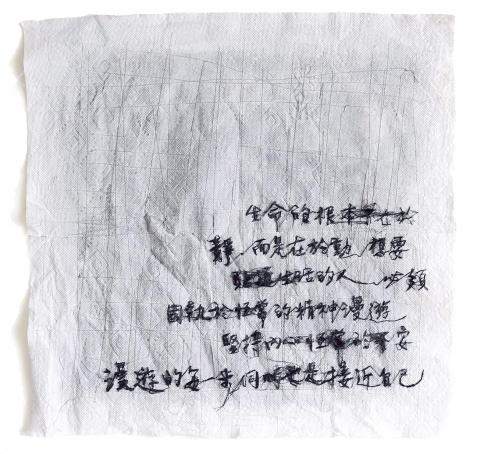 生命的根本不在於
靜，而是在於動，想要
生活的人，必須
固執於恆常的精神漫遊
堅持內心恆常的不安
漫遊的每一步同時也是接近自己